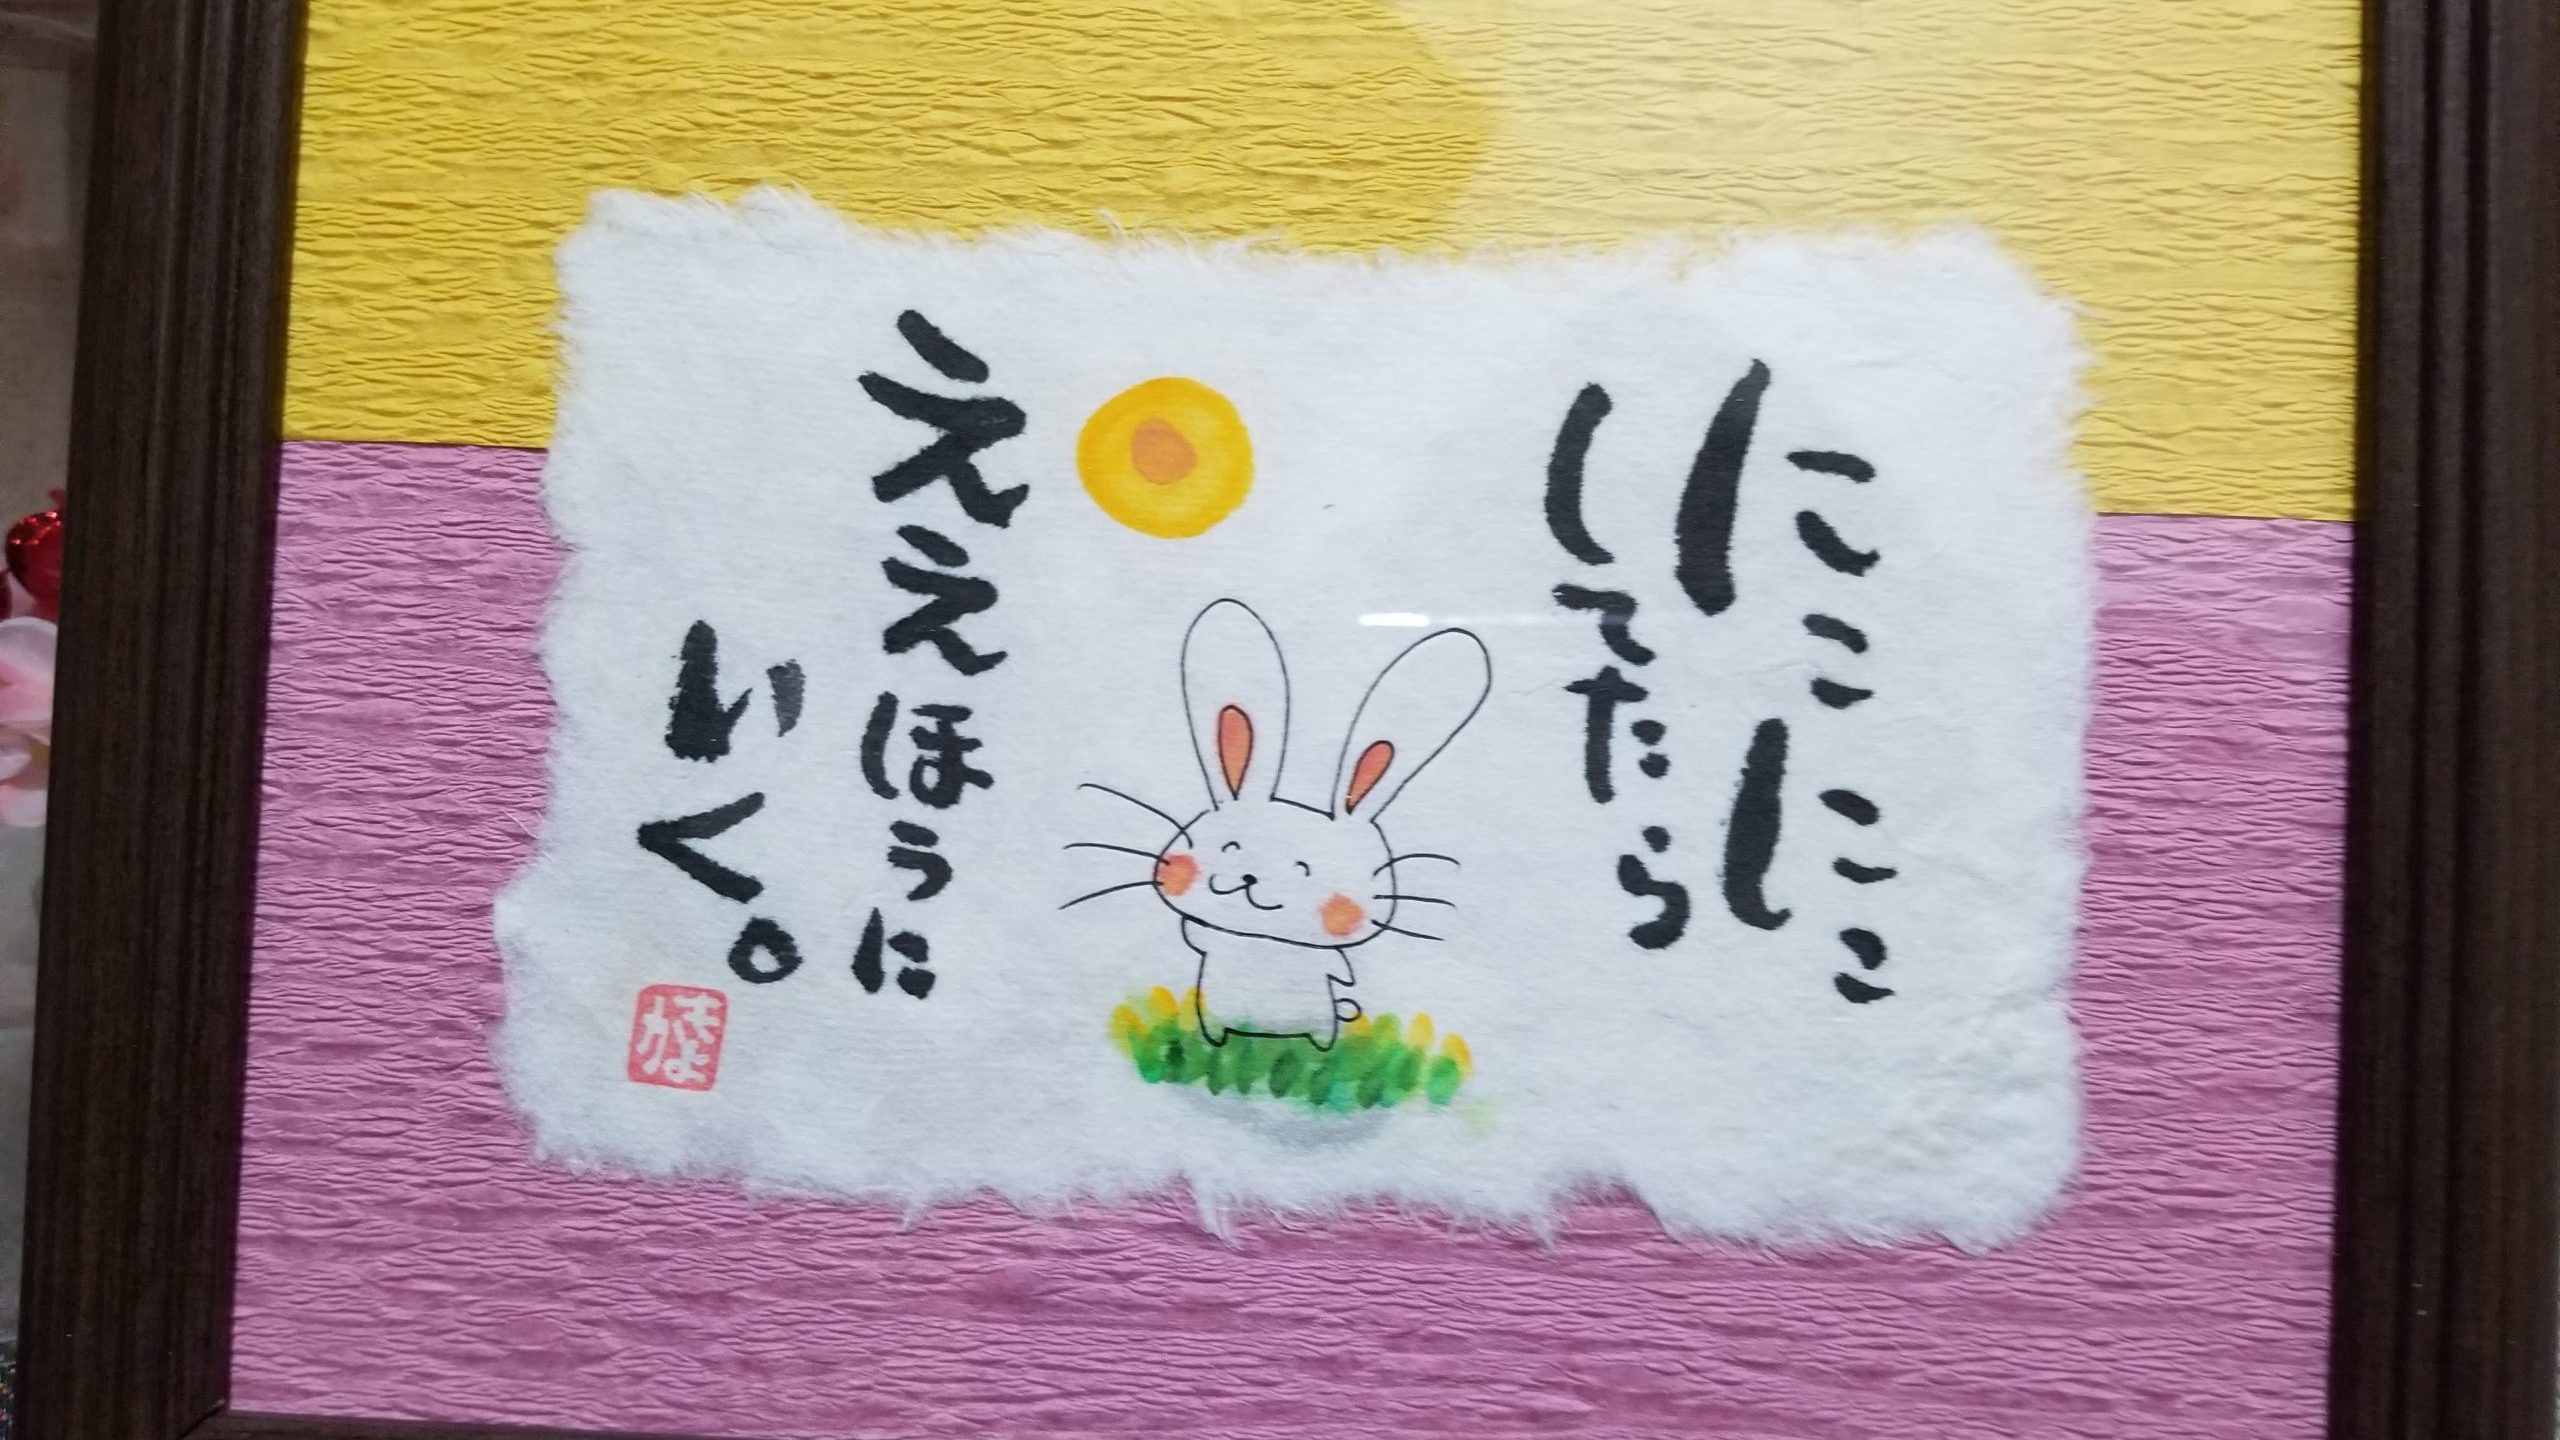 にこにこ
してたら
ええほうに
いく。